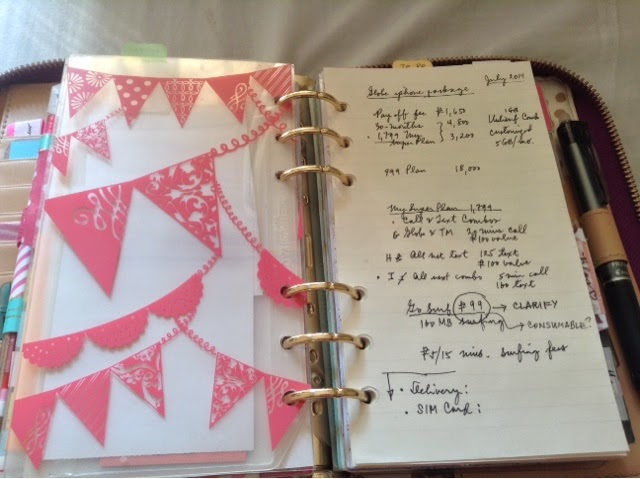 TO DO
July 2014
Globe iphone package
Pay off fee ₱1,650
30-months } 4,800
1,799 My Super Plan } 3,200
Customized
5GB/mo.
999 Plan 18,000
My Super Plan 1,799
• Call & Text Combos
G Globe & TM 20 mins call
₱100 value
H All net text 125 text
₱100 value
• I All net combo 5 min call
100 text
Go Surf ₱99 → CLARIFY
100 MB surfing → CONSUMABLE?
₱5/15 mins. surfing fees
• Delivery:
• SIM Card: